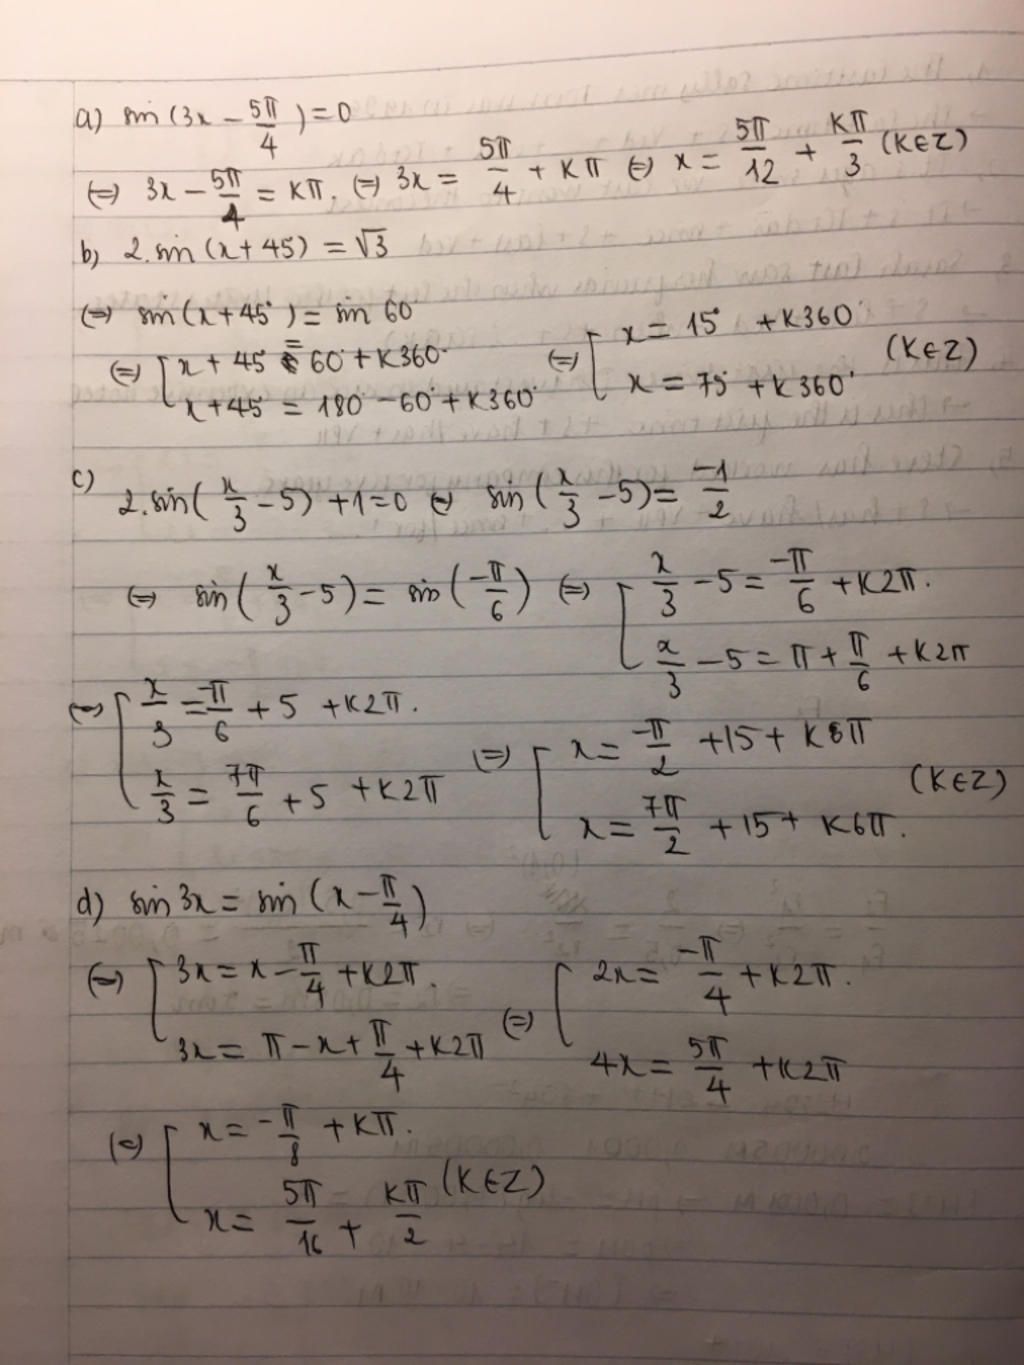 a) sin(3x − 5π/4) = 0
⇔ 3x − 5π/4 = Kπ. ⇔ 3x = 5π/4 + Kπ ⇔ x = 5π/12 + Kπ/3 (K∈Z)
b) 2.sin(x + 45) = √3
⇔ sin(x + 45°) = sin 60
⇔ [ x + 45° = 60° + K360°
x + 45° = 180° − 60° + K360°
⇔ [ x = 15° + K360°
x = 75° + K360° (K∈Z)
c) 2.sin(x/3 − 5) + 1 = 0 ⇔ sin(x/3 − 5) = −1/2
⇔ sin(x/3 − 5) = sin(−π/6) ⇔ [ x/3 − 5 = −π/6 + K2π.
x/3 − 5 = π + π/6 + K2π
⇔ [ x/3 = −π/6 + 5 + K2π.
x/3 = 7π/6 + 5 + K2π
⇔ [ x = −π/2 + 15 + K6π
x = 7π/2 + 15 + K6π. (K∈Z)
d) sin 3x = sin(x − π/4)
⇔ [ 3x = x − π/4 + K2π.
3x = π − x + π/4 + K2π
⇔ [ 2x = −π/4 + K2π.
4x = 5π/4 + K2π
⇔ [ x = −π/8 + Kπ.
x = 5π/16 + Kπ/2 (K∈Z)